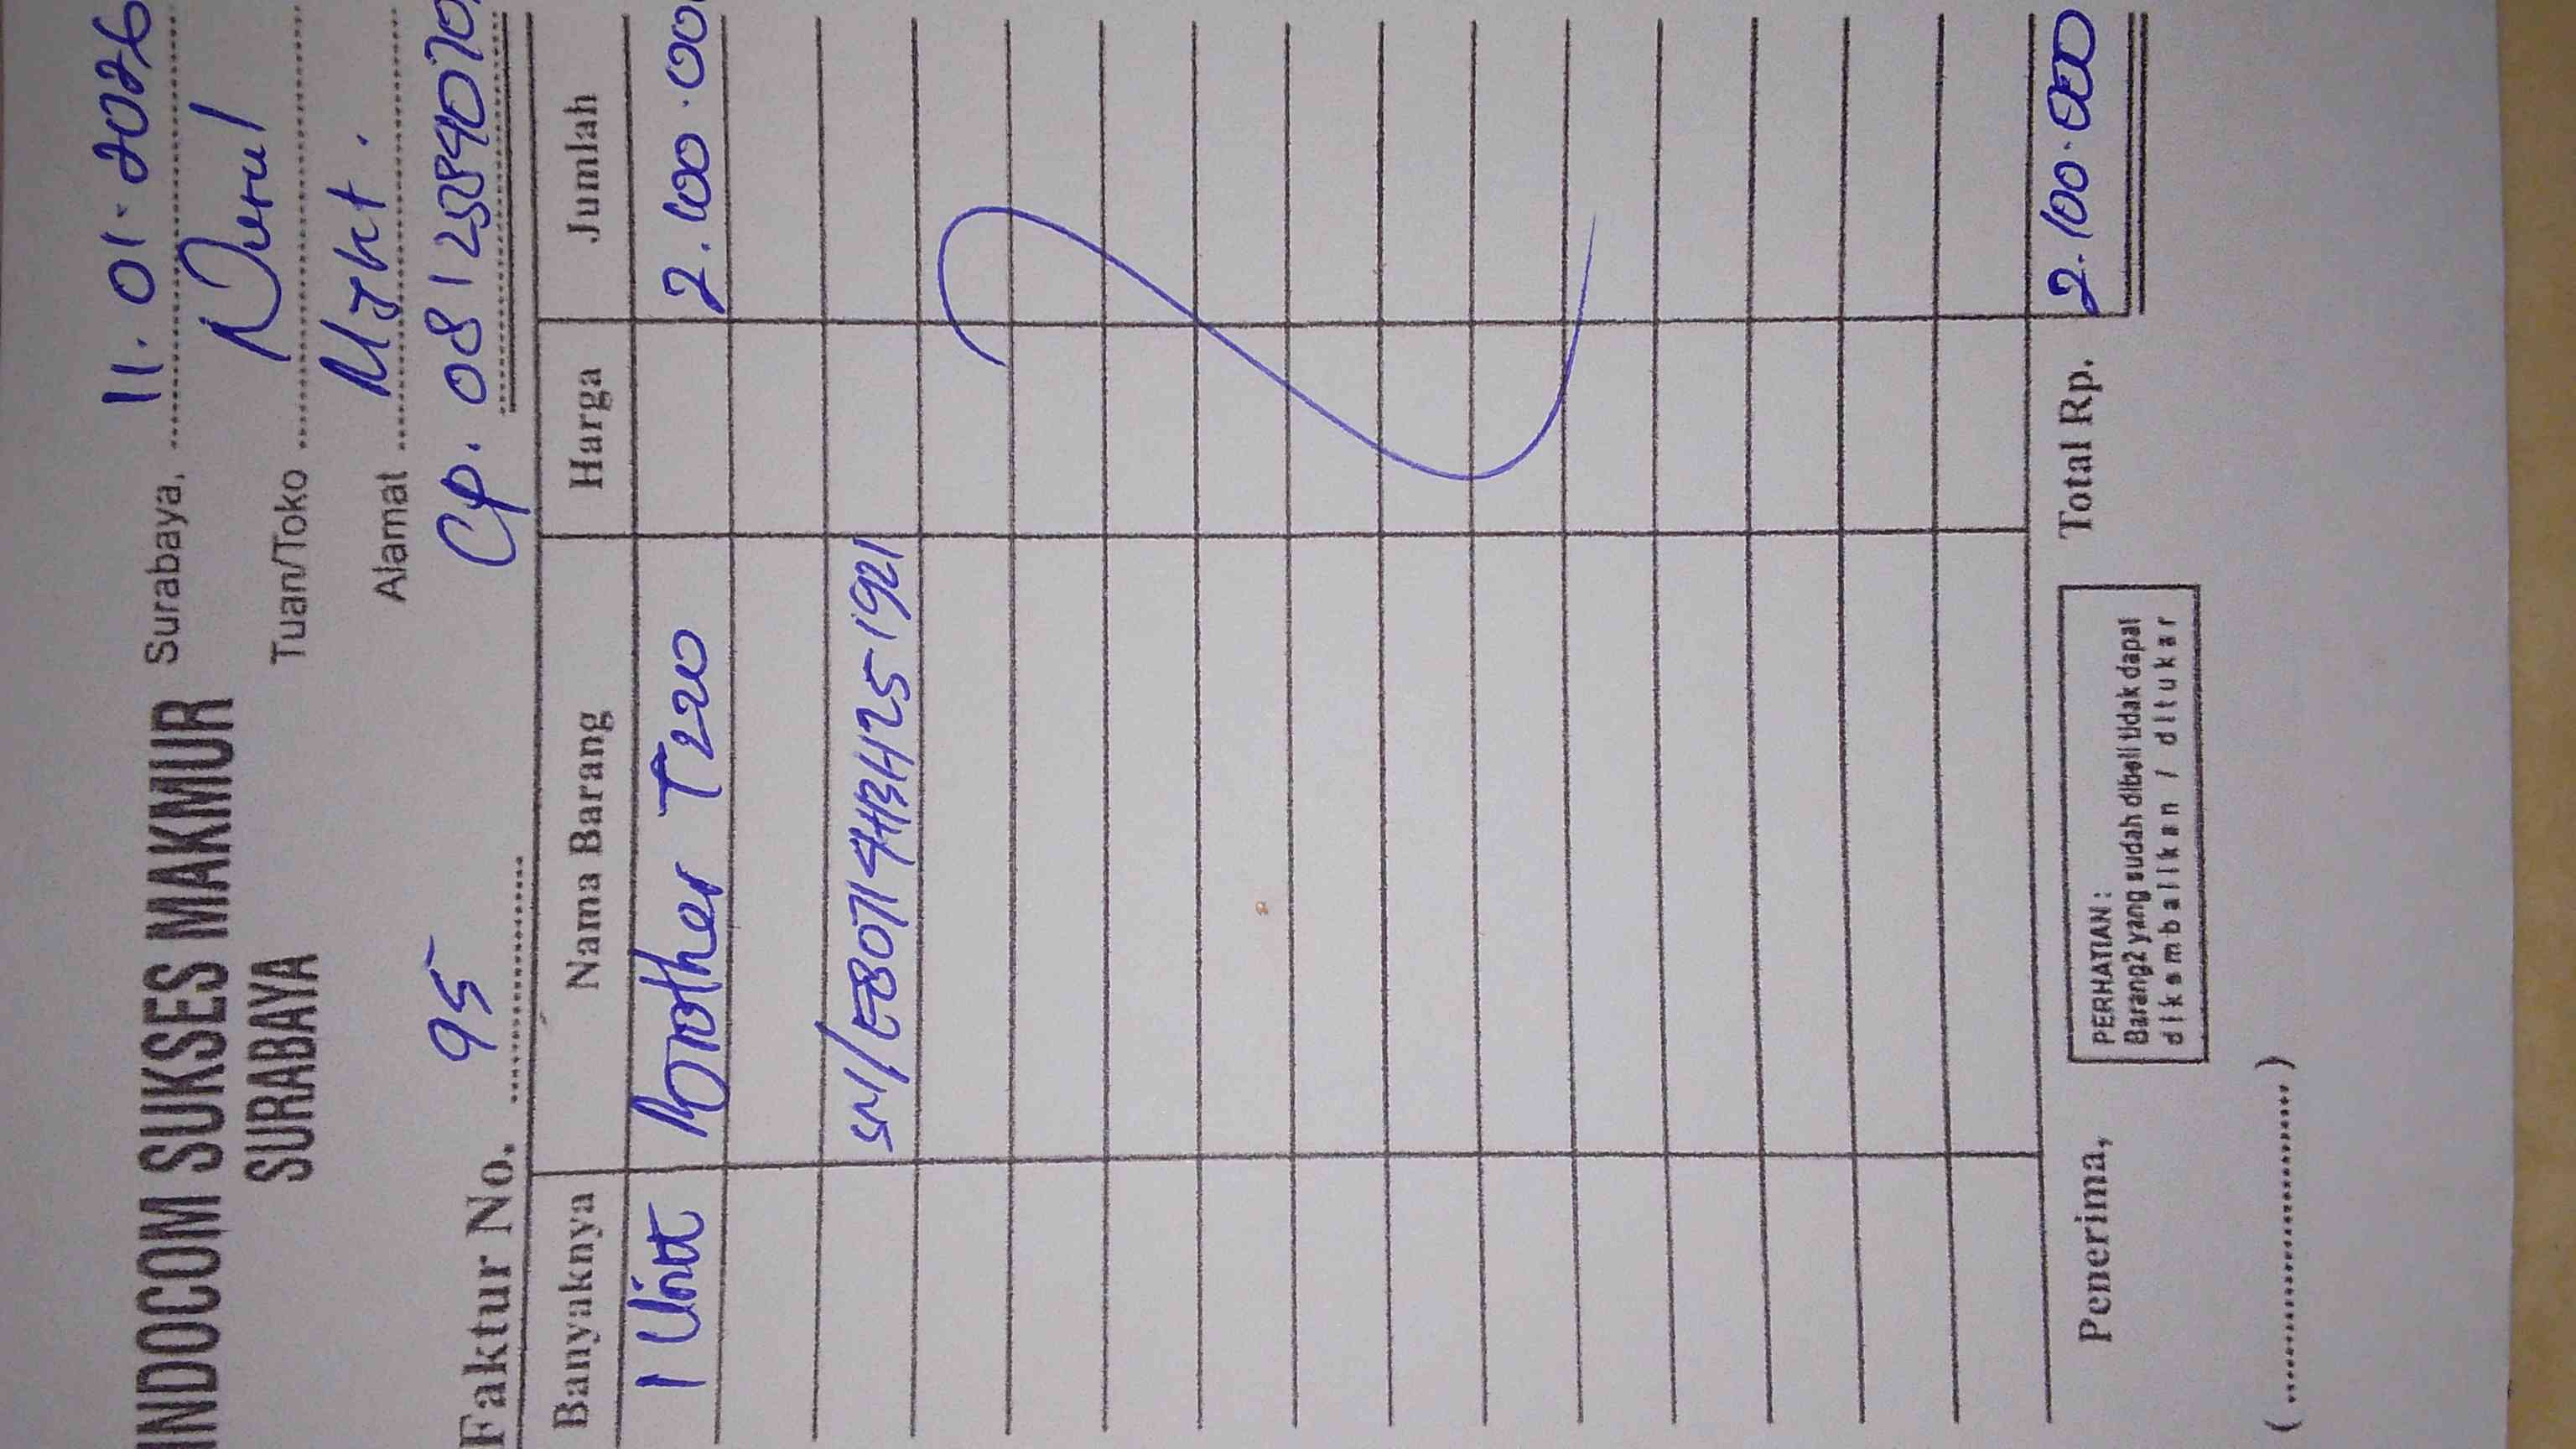 INDOCOM SUKSES MAKMUR
SURABAYA
Surabaya, 11.01.2026
Tuan/Toko Nurul
Alamat
Cp. 081 25894070
Faktur No. 95
Banyaknya Nama Barang Harga Jumlah
1 Unit Brother T220 2.100.000
SN/
Total Rp. 2.100.000
Penerima,
PERHATIAN :
Barang2 yang sudah dibeli tidak dapat
dikembalikan / ditukar
(....................)